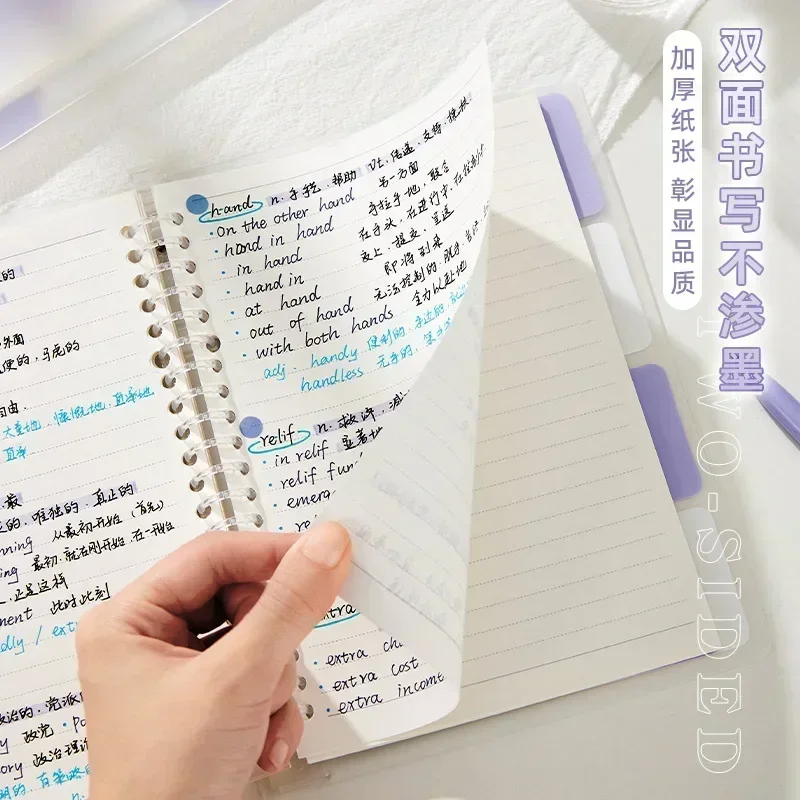 双面书写不渗墨
加厚纸张 彰显品质
TWO-SIDED
hand n. 手掌, 帮助 vt. 传递, 支持, 搀扶
· On the other hand 另一方面
· hand in hand 手拉手地, 联合
· in hand 在手头, 在进行中, 在控制中
· hand in 交上, 提交, 呈送
· at hand 即将到来
· out of hand 无法控制的, 脱手
· with both hands 全力以赴地
adj. handy 便利的,
handless 无手的,
relif n. 救济, 减
· in relif 显著地
· relif fun
· emerg
extra
· extra
· extra cost
· extra income
的
外面
便的, 马虎的
自由.
大量地, 慷慨地, 直率地
直率
最
的, 唯独的, 真正的
nning 从最初开始 (首先)
ing 最初, 就在刚开始, 在一开始
, 正是这样
ment 此时此刻
dly / extr
政治的, 党派
y 政党
ory 政治理论
明的, 有策略的